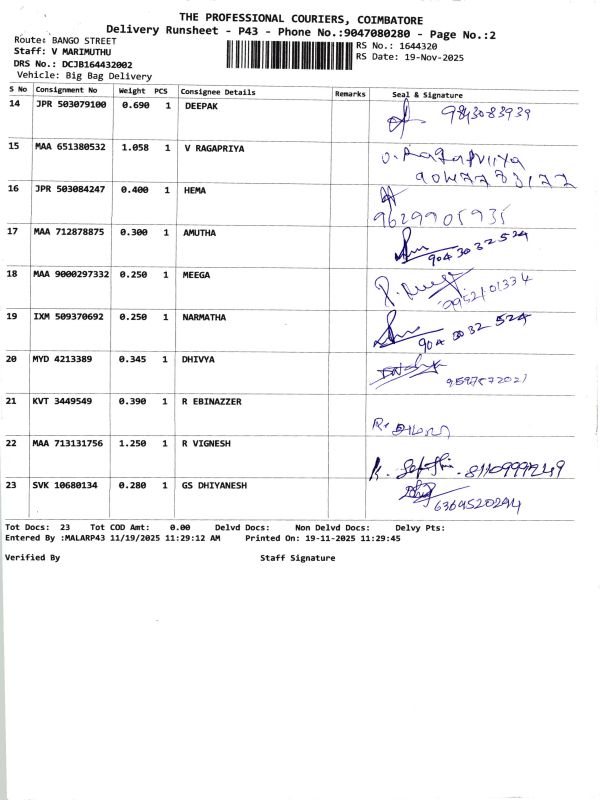 THE PROFESSIONAL COURIERS, COIMBATORE
Delivery Runsheet - P43 - Phone No.:9047080280 - Page No.:2
Route: BANGO STREET
Staff: V MARIMUTHU
RS No.: 1644320
DRS No.: DCJB164432002
RS Date: 19-Nov-2025
Vehicle: Big Bag Delivery
S No Consignment No Weight PCS Consignee Details Remarks Seal & Signature
14 JPR 503079100 0.690 1 DEEPAK 9843083939
15 MAA 651380532 1.058 1 V RAGAPRIYA
V. Ragapriya
16 JPR 503084247 0.400 1 HEMA
9629905935
17 MAA 712878875 0.300 1 AMUTHA
9043032524
18 MAA 9000297332 0.250 1 MEEGA
9952101334
19 IXM 509370692 0.250 1 NARMATHA
9043032524
20 MYD 4213389 0.345 1 DHIVYA
21 KVT 3449549 0.390 1 R EBINAZZER
22 MAA 713131756 1.250 1 R VIGNESH
23 SVK 10680134 0.280 1 GS DHIYANESH
6369520294
Tot Docs: 23 Tot COD Amt: 0.00 Delvd Docs: Non Delvd Docs: Delvy Pts:
Entered By :MALARP43 11/19/2025 11:29:12 AM Printed On: 19-11-2025 11:29:45
Verified By Staff Signature